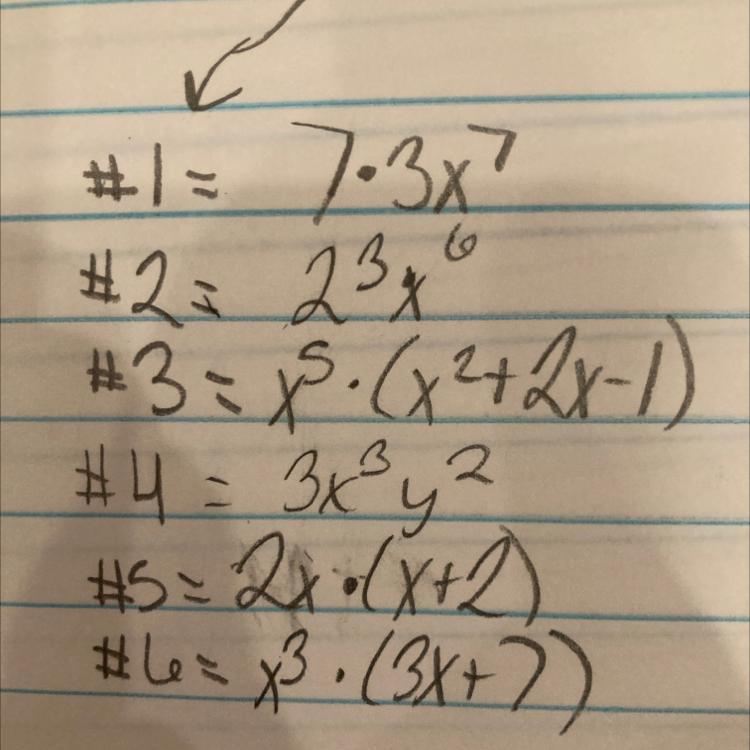 #1 = 7·3x⁷
#2 = 2³x⁶
#3 = x⁵·(x²+2x-1)
#4 = 3x³y²
#5 = 2x·(x+2)
#6 = x³·(3x+7)